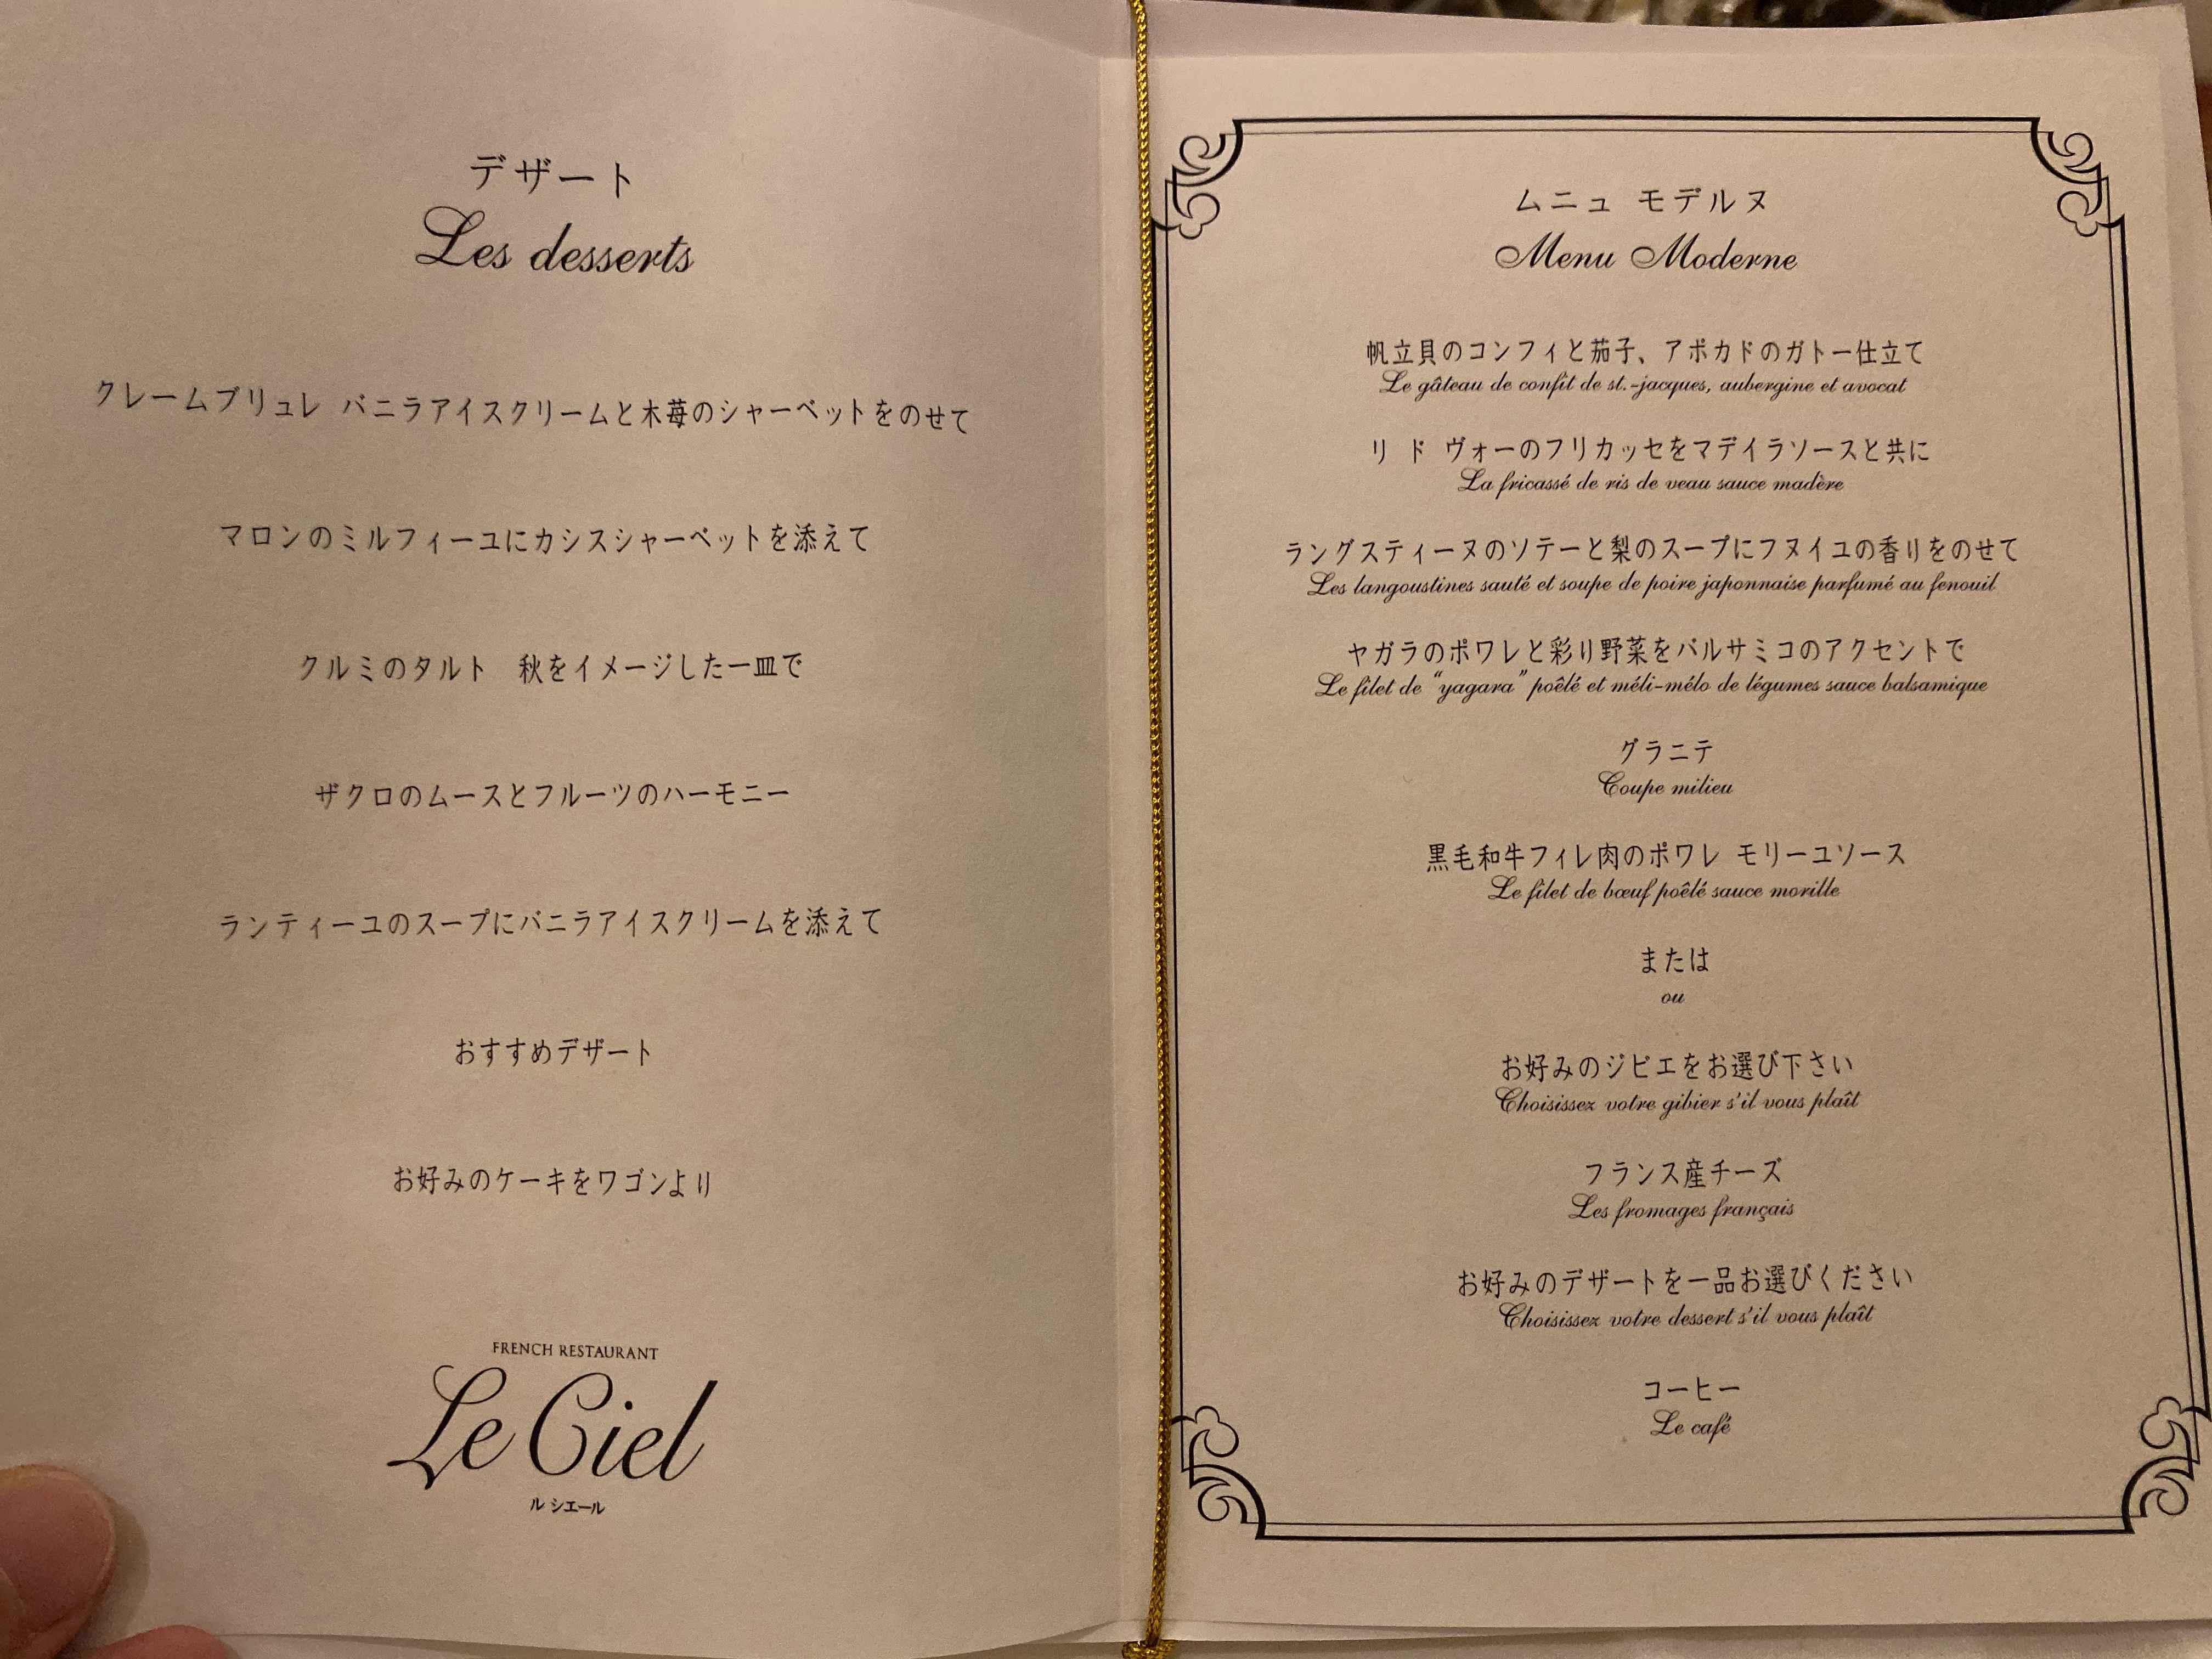 デザート
Les desserts
クレームブリュレ バニラアイスクリームと木苺のシャーベットをのせて
マロンのミルフィーユにカシスシャーベットを添えて
クルミのタルト 秋をイメージした一皿で
ザクロのムースとフルーツのハーモニー
ランティーユのスープにバニラアイスクリームを添えて
おすすめデザート
お好みのケーキをワゴンより
FRENCH RESTAURANT
Le Ciel
ル シエール
ムニュ モデルヌ
Menu Moderne
帆立貝のコンフィと茄子、アボカドのガトー仕立て
Le gâteau de confit de st.-jacques, aubergine et avocat
リ ド ヴォーのフリカッセをマデイラソースと共に
La fricassé de ris de veau sauce madère
ラングスティーヌのソテーと梨のスープにフヌイユの香りをのせて
Les langoustines sauté et soupe de poire japonnaise parfumé au fenouil
ヤガラのポワレと彩り野菜をバルサミコのアクセントで
Le filet de “yagara” poêlé et méli-mélo de légumes sauce balsamique
グラニテ
Coupe milieu
黒毛和牛フィレ肉のポワレ モリーユソース
Le filet de bœuf poêlé sauce morille
または
ou
お好みのジビエをお選び下さい
Choisissez votre gibier s'il vous plaît
フランス産チーズ
Les fromages français
お好みのデザートを一品お選びください
Choisissez votre dessert s'il vous plaît
コーヒー
Le café